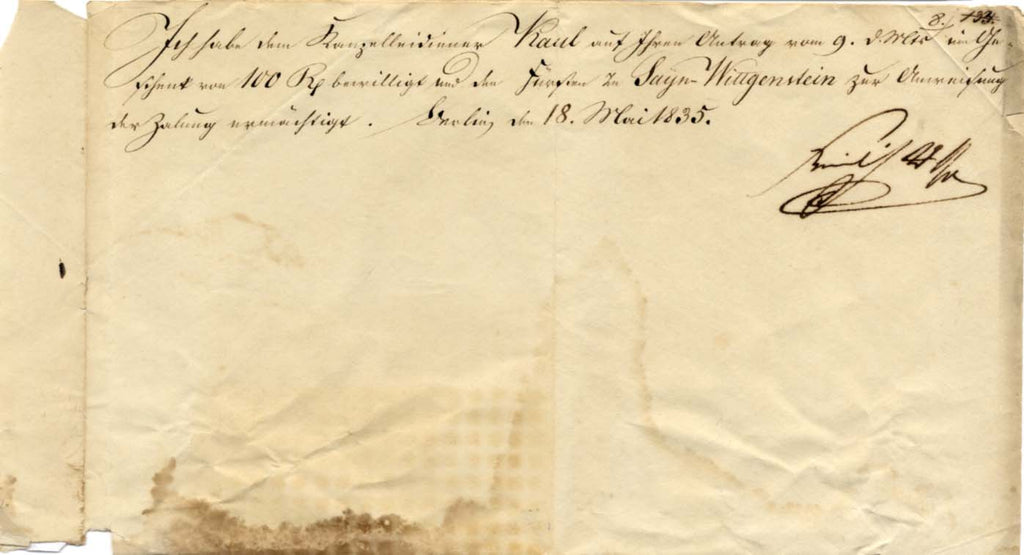 8. 433.
Ich habe dem Kanzelleidiener Kaul auf Ihren Antrag vom 9. d. Mts ein Ge-
schenk von 100 Rp bewilligt und den Fürsten zu Sayn-Wittgenstein zur Anweisung
der Zalung ermächtigt. Berlin, den 18. Mai 1835.